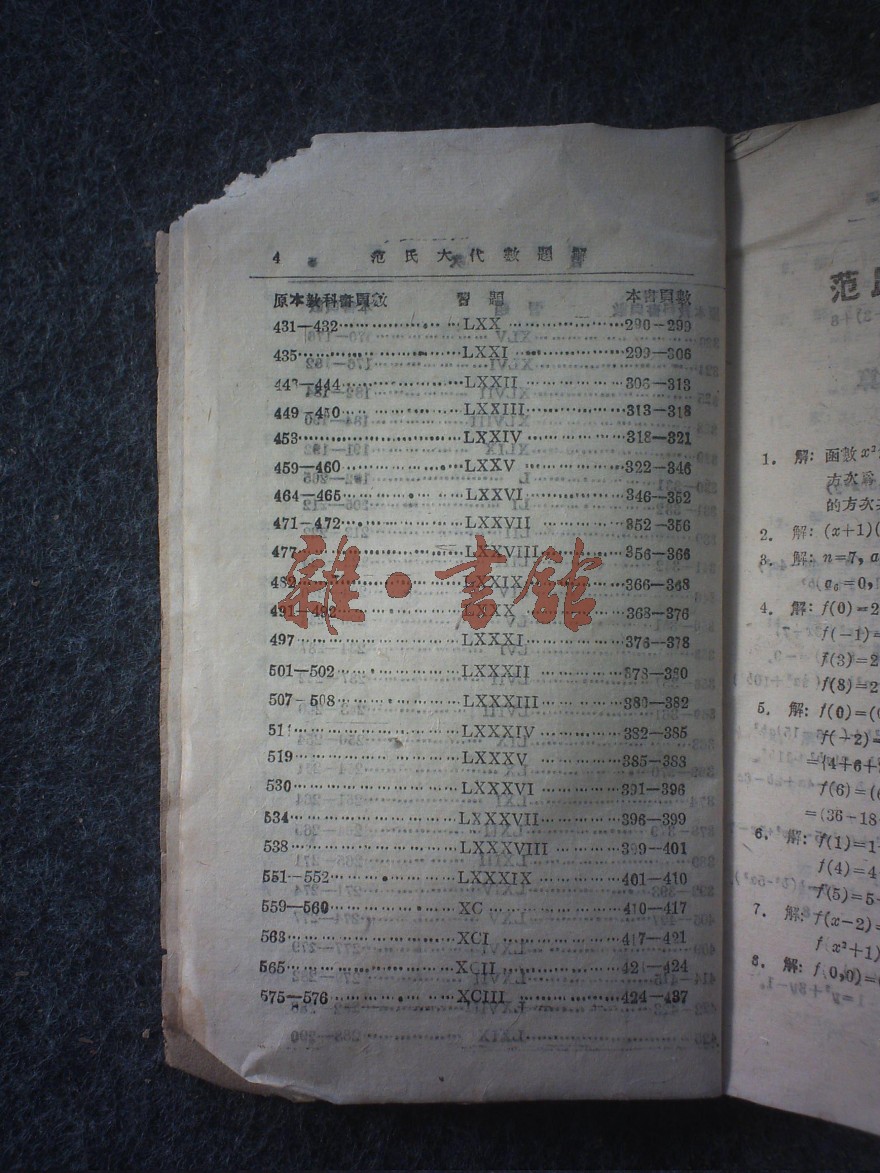 4 范氏大代數題解
原本教科書頁數 習題 本書頁數
431—432 LXX 290—299
435 LXXI 299—306
443—444 LXXII 306—313
449—450 LXXIII 313—318
453 LXXIV 318—321
459—460 LXXV 322—346
464—465 LXXVI 346—352
471—472 LXXVII 352—356
477 LXXVIII 356—366
482 LXXIX 366—368
491—492 LXXX 368—376
497 LXXXI 376—378
501—502 LXXXII 378—380
507—508 LXXXIII 380—382
LXXXIV 382—385
519 LXXXV 385—388
530 LXXXVI 391—396
534 LXXXVII 396—399
538 LXXXVIII 399—401
551—552 LXXXIX 401—410
559—560 XC 410—417
563 XCI 417—421
565 XCII 421—424
575—576 XCIII 424—437
雜·書館
范
1. 解: 函數 x²
方次爲
的方次
2. 解: (x+1)(
3. 解: n=7, a
a₆=0,
4. 解: f(0)=2
f(−1)=
f(3)=2
f(8)=2
5. 解: f(0)=(
f(−2)=
=(4+6+
f(6)=(6
=(36−18
6. 解: f(1)=1
f(4)=4
f(5)=5
7. 解: f(x−2)=
f(x²+1)
8. 解: f(0,0)=